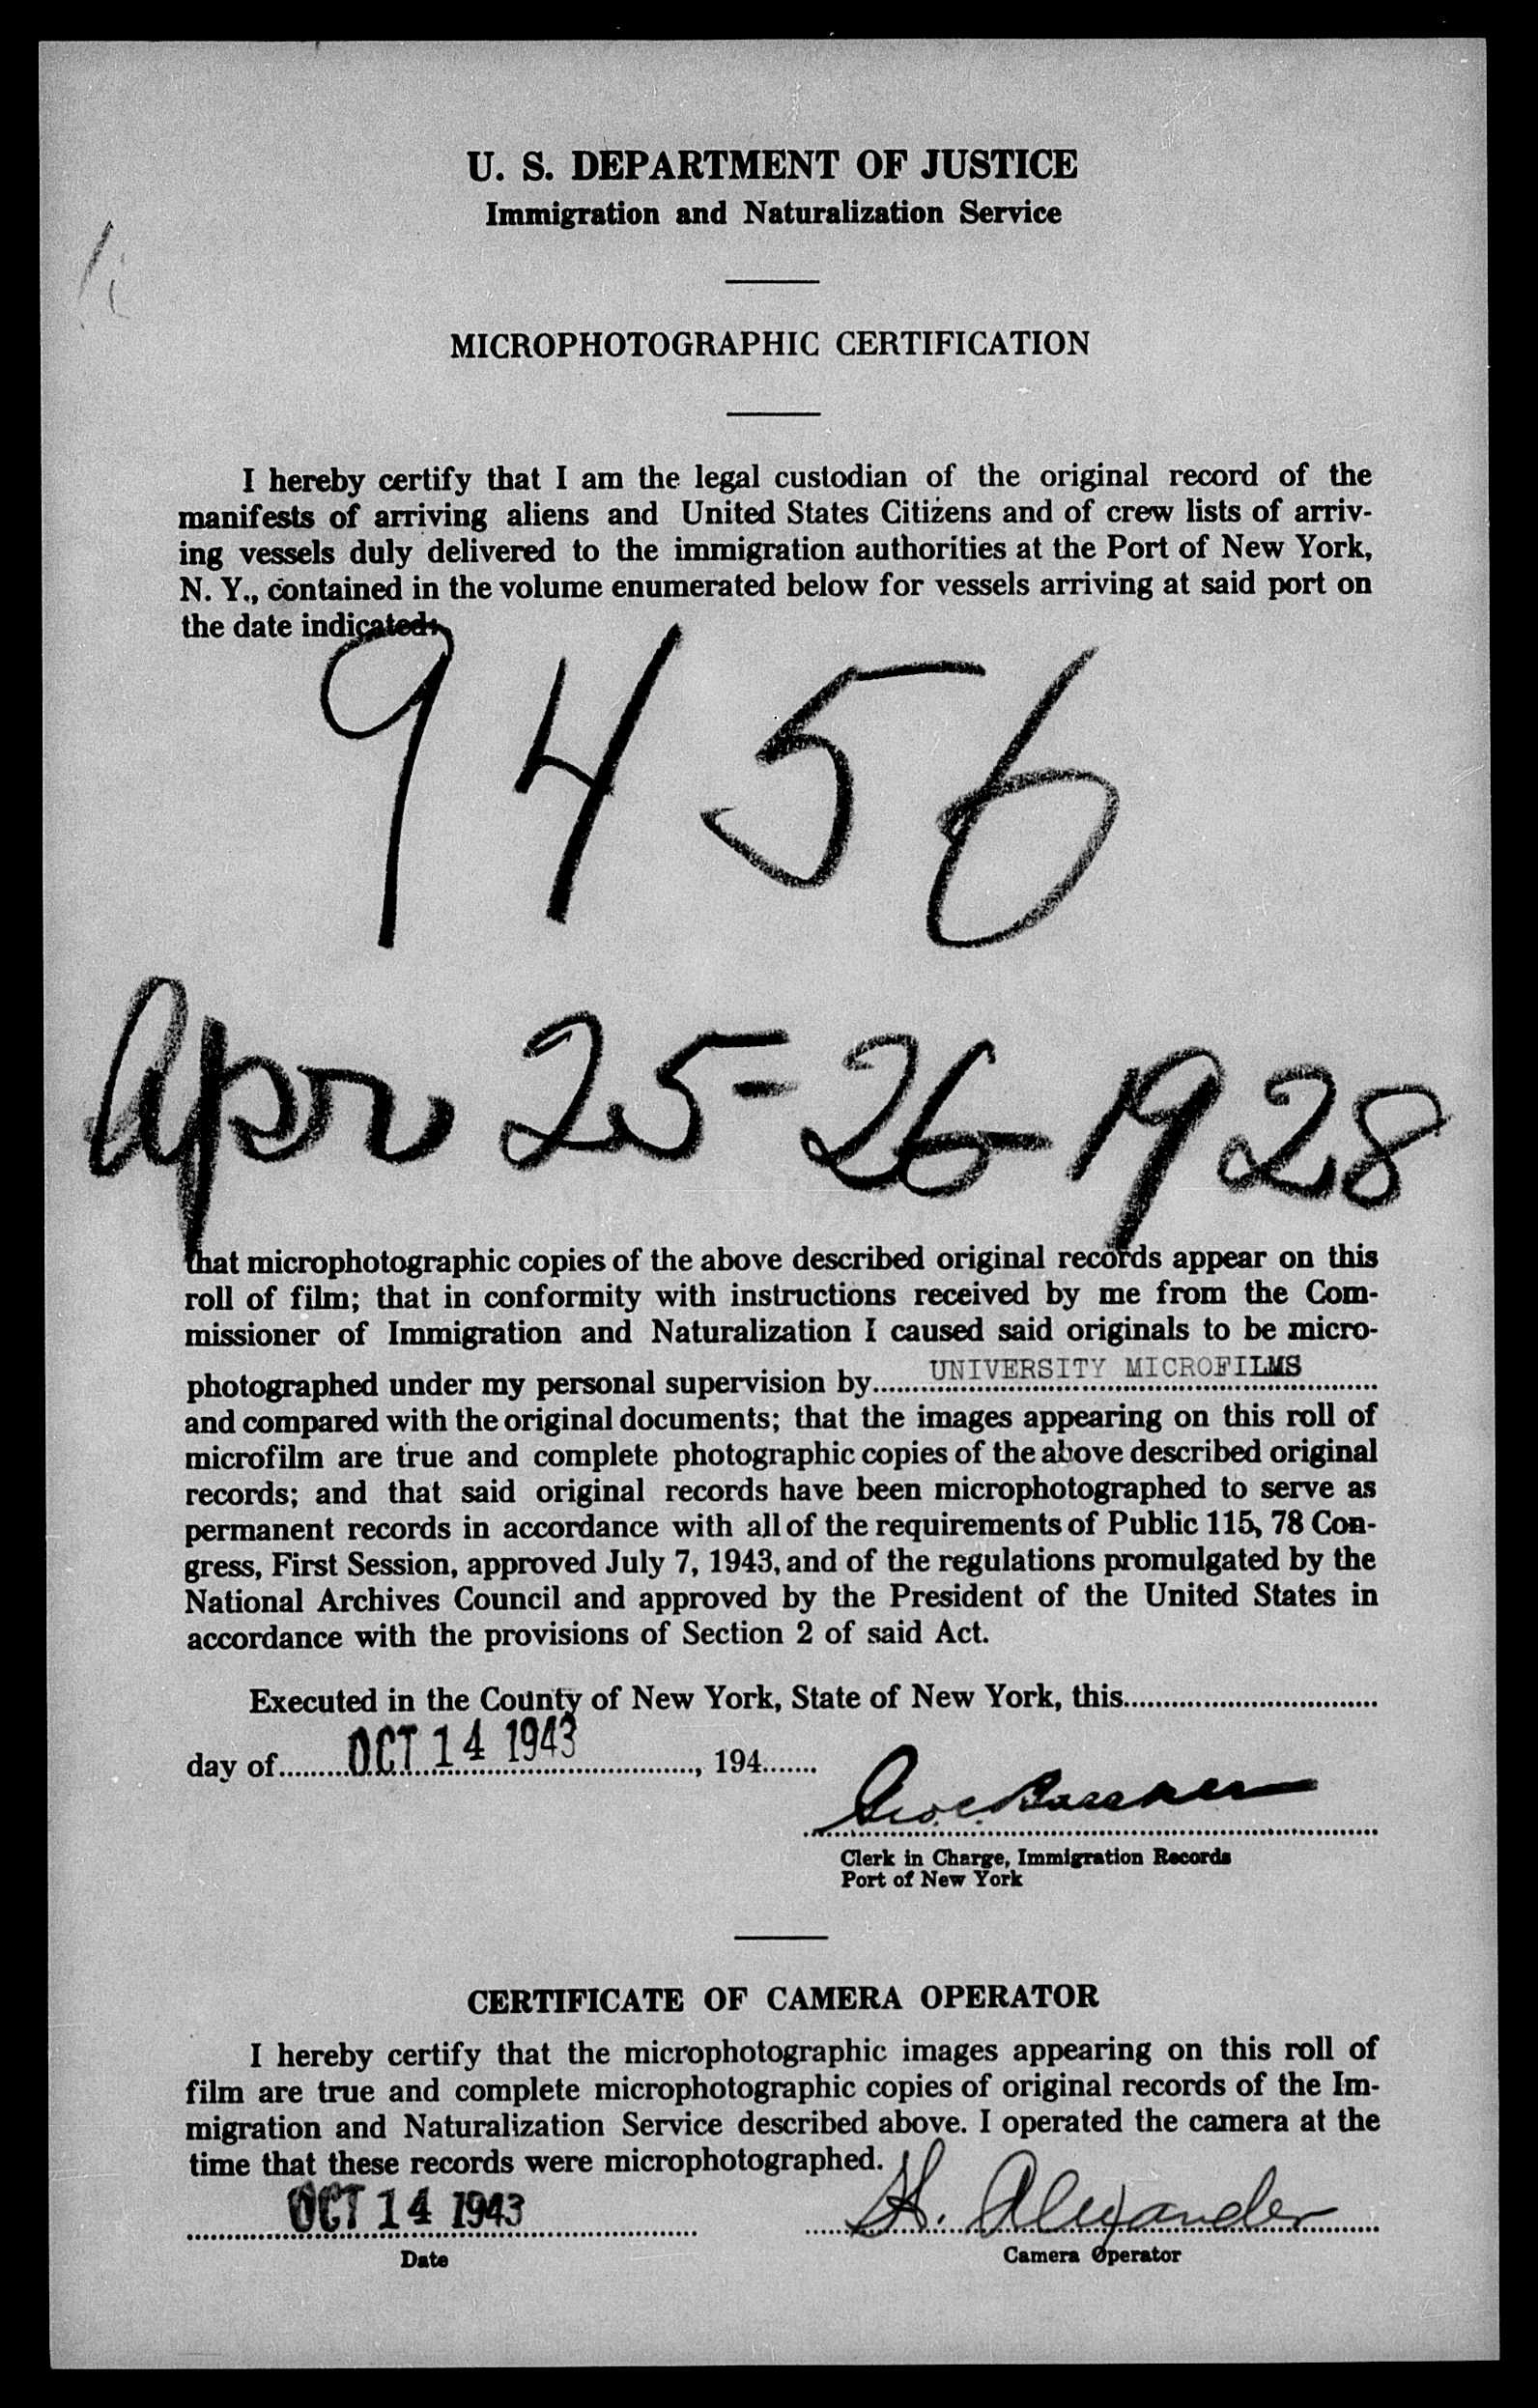 U. S. DEPARTMENT OF JUSTICE
Immigration and Naturalization Service
MICROPHOTOGRAPHIC CERTIFICATION
I hereby certify that I am the legal custodian of the original record of the
manifests of arriving aliens and United States Citizens and of crew lists of arriv-
ing vessels duly delivered to the immigration authorities at the Port of New York,
N. Y., contained in the volume enumerated below for vessels arriving at said port on
the date indicated:
9456
Apr 25-26-1928
that microphotographic copies of the above described original records appear on this
roll of film; that in conformity with instructions received by me from the Com-
missioner of Immigration and Naturalization I caused said originals to be micro-
photographed under my personal supervision by UNIVERSITY MICROFILMS
and compared with the original documents; that the images appearing on this roll of
microfilm are true and complete photographic copies of the above described original
records; and that said original records have been microphotographed to serve as
permanent records in accordance with all of the requirements of Public 115, 78 Con-
gress, First Session, approved July 7, 1943, and of the regulations promulgated by the
National Archives Council and approved by the President of the United States in
accordance with the provisions of Section 2 of said Act.
Executed in the County of New York, State of New York, this
day of OCT 14 1943, 194
Clerk in Charge, Immigration Records
Port of New York
CERTIFICATE OF CAMERA OPERATOR
I hereby certify that the microphotographic images appearing on this roll of
film are true and complete microphotographic copies of original records of the Im-
migration and Naturalization Service described above. I operated the camera at the
time that these records were microphotographed.
OCT 14 1943 H. Alexander
Date Camera Operator